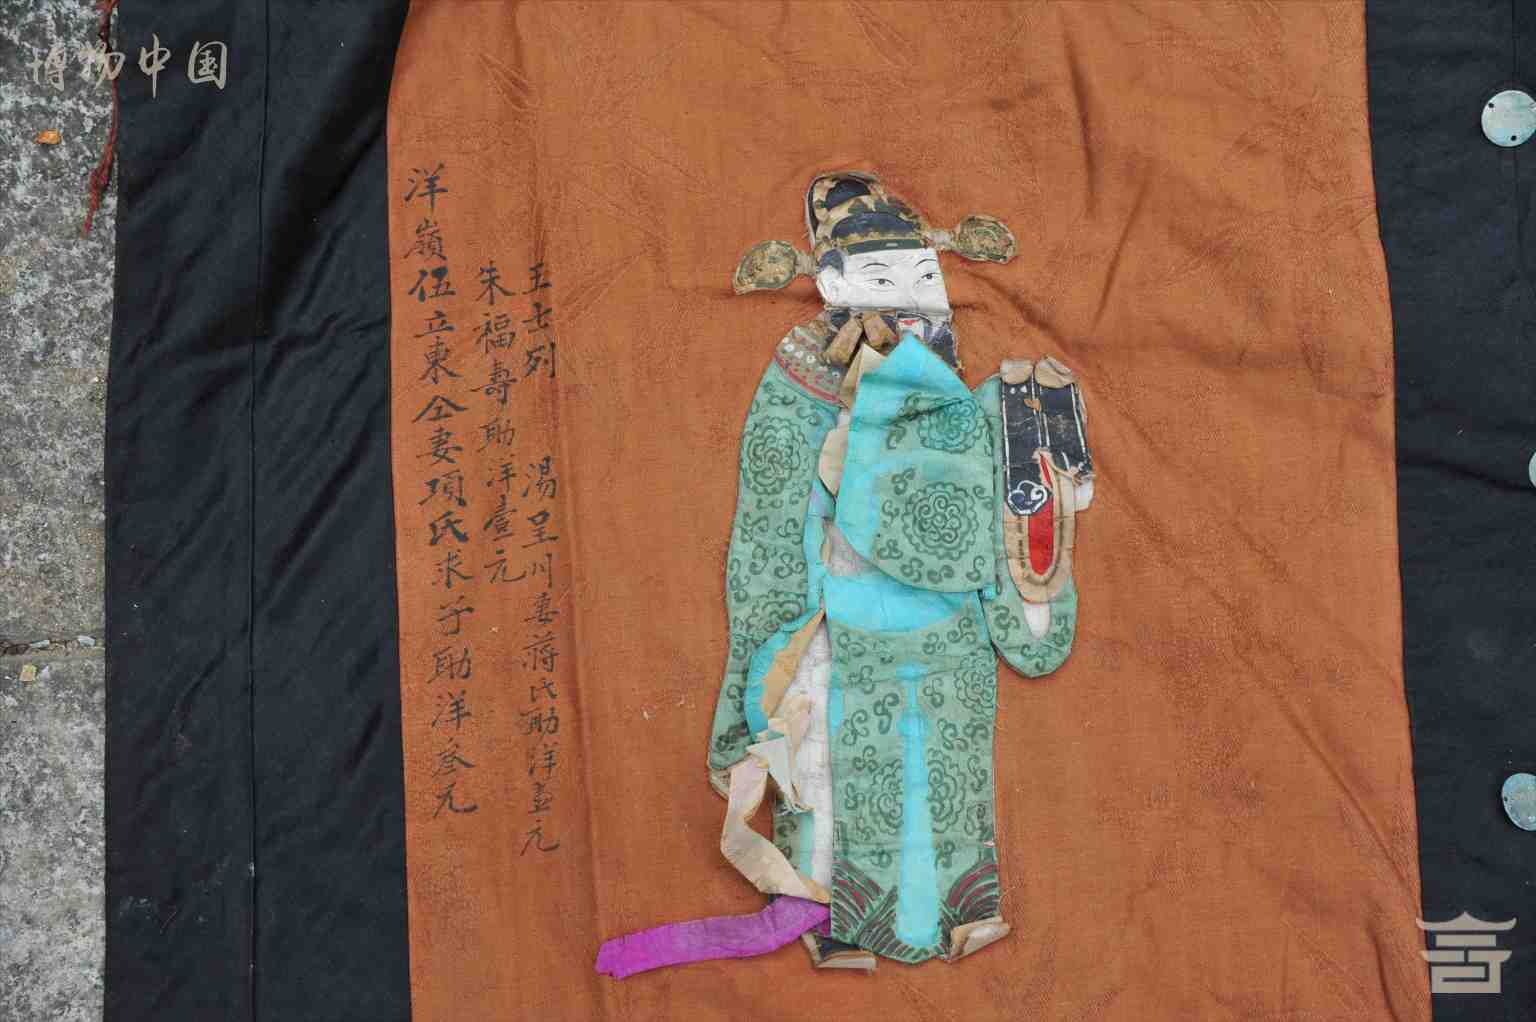 博物中国
王士列 湯呈川妻蔣氏助洋壹元
朱福壽助洋壹元
洋嶺伍立東仝妻項氏求子助洋叁元